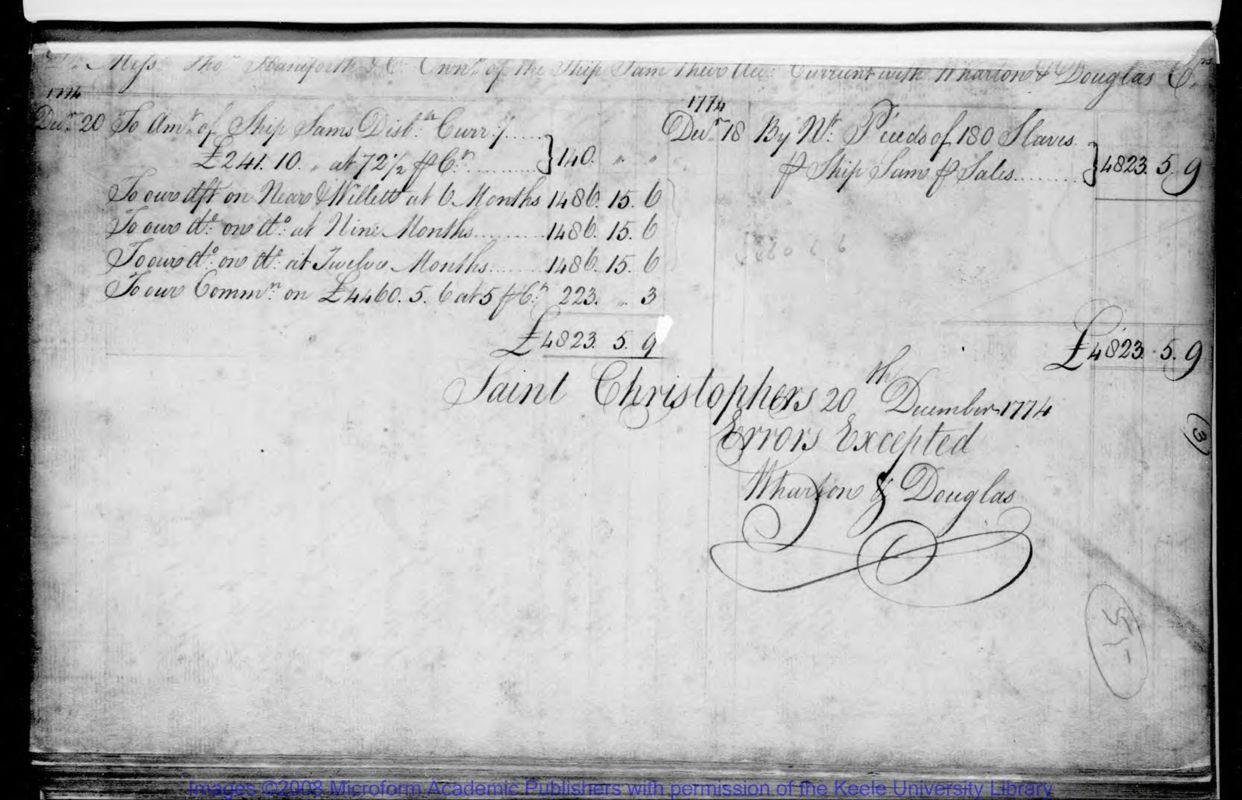 Mess. Tho.s Staniforth & C.o Own.rs of the Ship Sam their Acc. Current with Wharton & Douglas C.rs
1774
Dec.r 20 To Am.t of Ship Sams Disb.ts Curr.y ....
£241. 10. „ at 72½ ⅌ C.t ........ } 140. „ „
To our dft on Neave & Willett at 6 Months 1486. 15. 6
To our d.o on d.o at Nine Months ........ 1486. 15. 6
To our d.o on d.o at Twelve Months ...... 1486. 15. 6
To our Comm.n on £4460. 5. 6 at 5 ⅌ C.t 223. „ 3
£4823. 5. 9
1774
Dec.r 18 By N.t P.ceeds of 180 Slaves
⅌ Ship Sam ⅌ Sales ........ } 4823. 5. 9
£4823. 5. 9
Saint Christophers 20th December 1774
Errors Excepted
Wharton & Douglas
3
Images ©2008 Microform Academic Publishers with permission of the Keele University Library